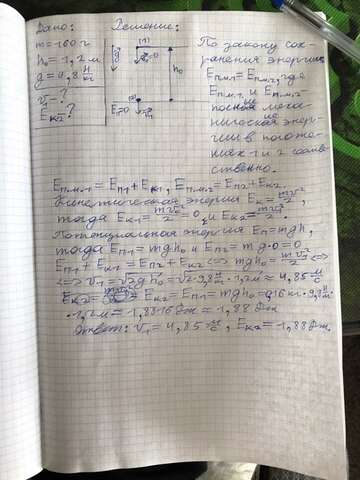 Дано:
m=160 г
h₀=1,2 м
g=9,8 Н/кг
v₁-?
Eк2-?
Решение:
(1)
g
h₀
(2)
По закону сох-
ранения энергии:
Eп.м.1=Eп.м.2, где
Eп.м.1 и Eп.м.2-
полные меха-
нические энер-
гии в положе-
ниях 1 и 2 соотве-
тственно.
Eп.м.1=Eп1+Eк1, Eп.м.2=Eп2+Eк2.
Кинетическая энергия Eк=mv²/2,
тогда Eк1=mv₀²/2=0, и Eк2=mv₁²/2.
Потенциальная энергия Eп=mgh,
тогда Eп1=mgh₀ и Eп2=mg·0=0
Eп1+Eк1=Eп2+Eк2⇔mgh₀=mv₁²/2⇔
⇔v₁=√2gh₀=√2·9,8 м/с²·1,2м≈4,85 м/с
Eк2= =Eк2=Eп1=mgh₀=0,16 кг·9,8 Н/кг·
·1,2м≈1,8816 Дж≈1,88 Дж
Ответ: v₁=4,85 м/с, Eк2=1,88 Дж.